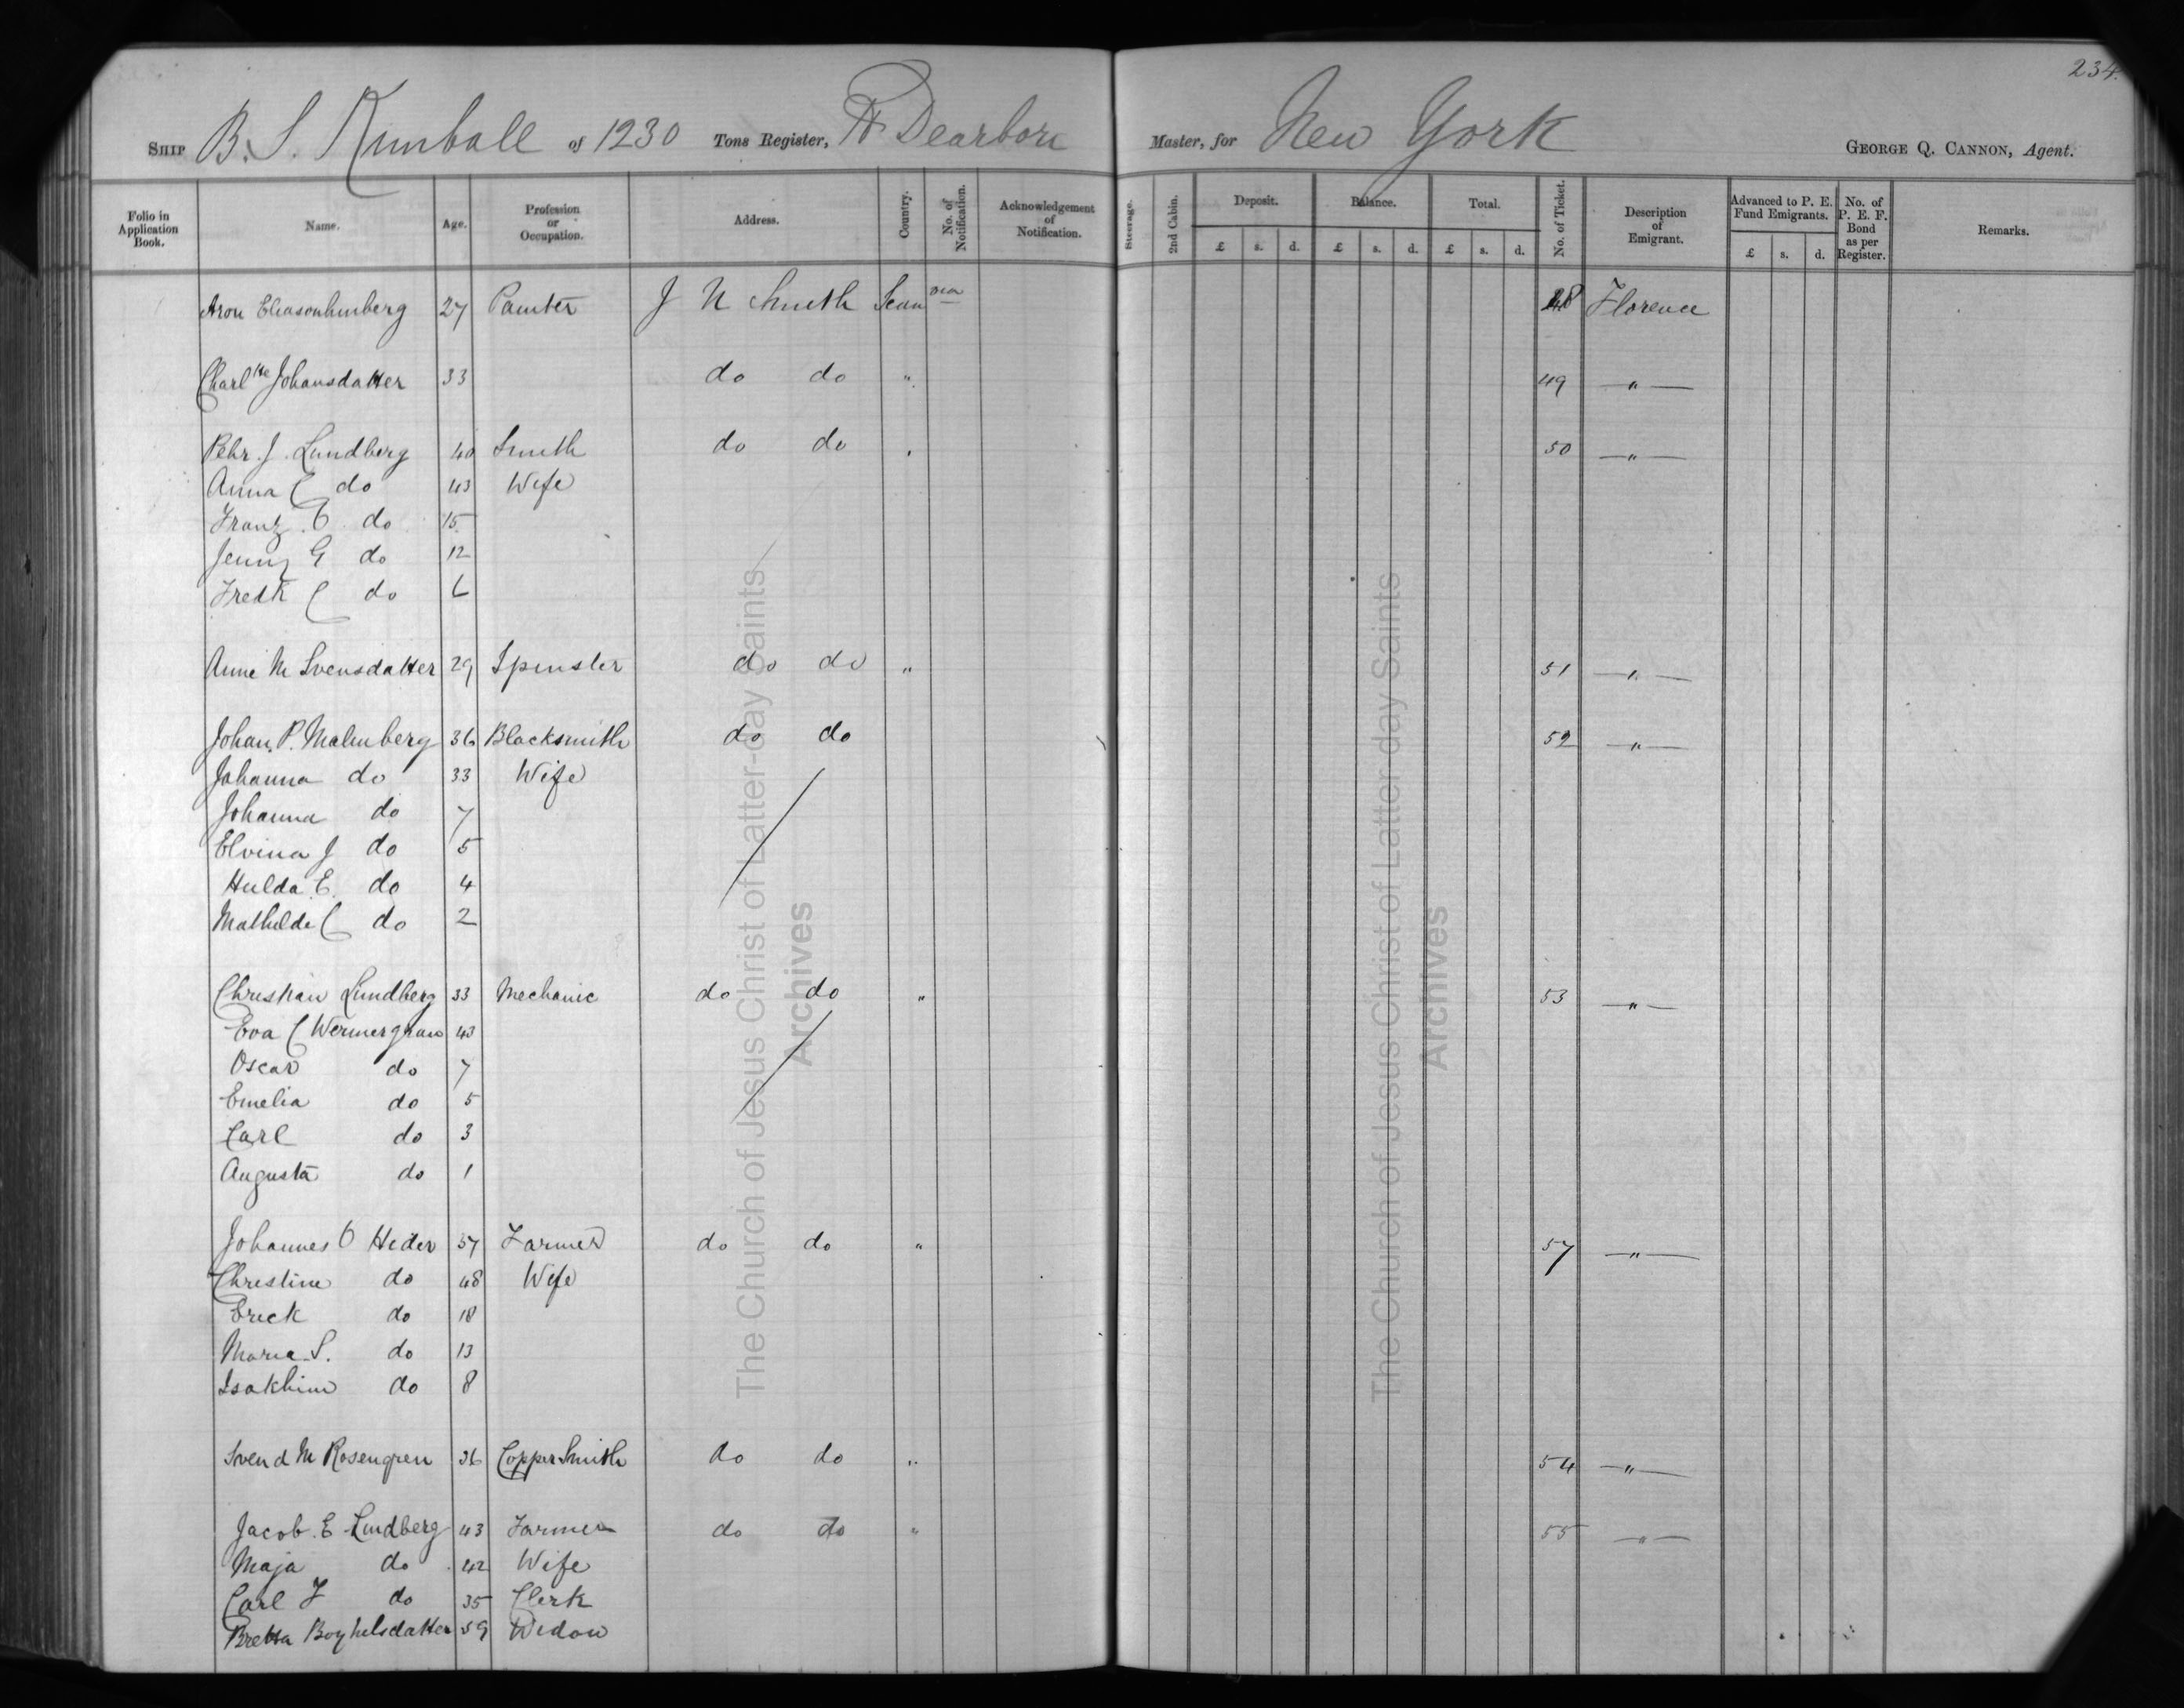 234.
SHIP B. S. Kimball of 1230 Tons Register, H Dearborn Master, for New York GEORGE Q. CANNON, Agent.
Folio in Application Book. Name. Age. Profession or Occupation. Address. Country. No. of Notification. Acknowledgement of Notification. Steerage. 2nd Cabin. Deposit. Balance. Total. No. of Ticket. Description of Emigrant. Advanced to P. E. Fund Emigrants. No. of P. E. F. Bond as per Register. Remarks.
£ s. d. £ s. d. £ s. d. £ s. d.
Aron 27 Painter J N Smith Scan via 48 Florence
Charltte Johansdatter 33 do do " 49 "
Pehr. J. Lundberg 40 Smith do do " 50 "
Anna C do 43 Wife
Franz. E. do 15
Jenny G do 12
Fredk C do 6
Anne M Svensdatter 29 Spinster do do " 51 "
Johan. P. Malmberg 36 Blacksmith do do 52 "
Johanna do 33 Wife
Johanna do 7
Elvina J do 5
Hulda E. do 4
Mathilde C do 2
Christian Lundberg 33 Mechanic do do " 53 "
Eva C Wermergran 43
Oscar do 7
Emelia do 5
Carl do 3
Augusta do 1
Johannes O Heder 57 Farmer do do " 57 "
Christine do 48 Wife
Erick do 18
Maria S. do 13
do 8
Svend M Rosengren 36 Copper Smith do do " 54 "
Jacob. E Lindberg 43 Farmer do do " 55 "
Maja do 42 Wife
Carl F do 35 Clerk
Bretta 59 Widow
The Church of Jesus Christ of Latter-day Saints
Archives
The Church of Jesus Christ of Latter-day Saints
Archives